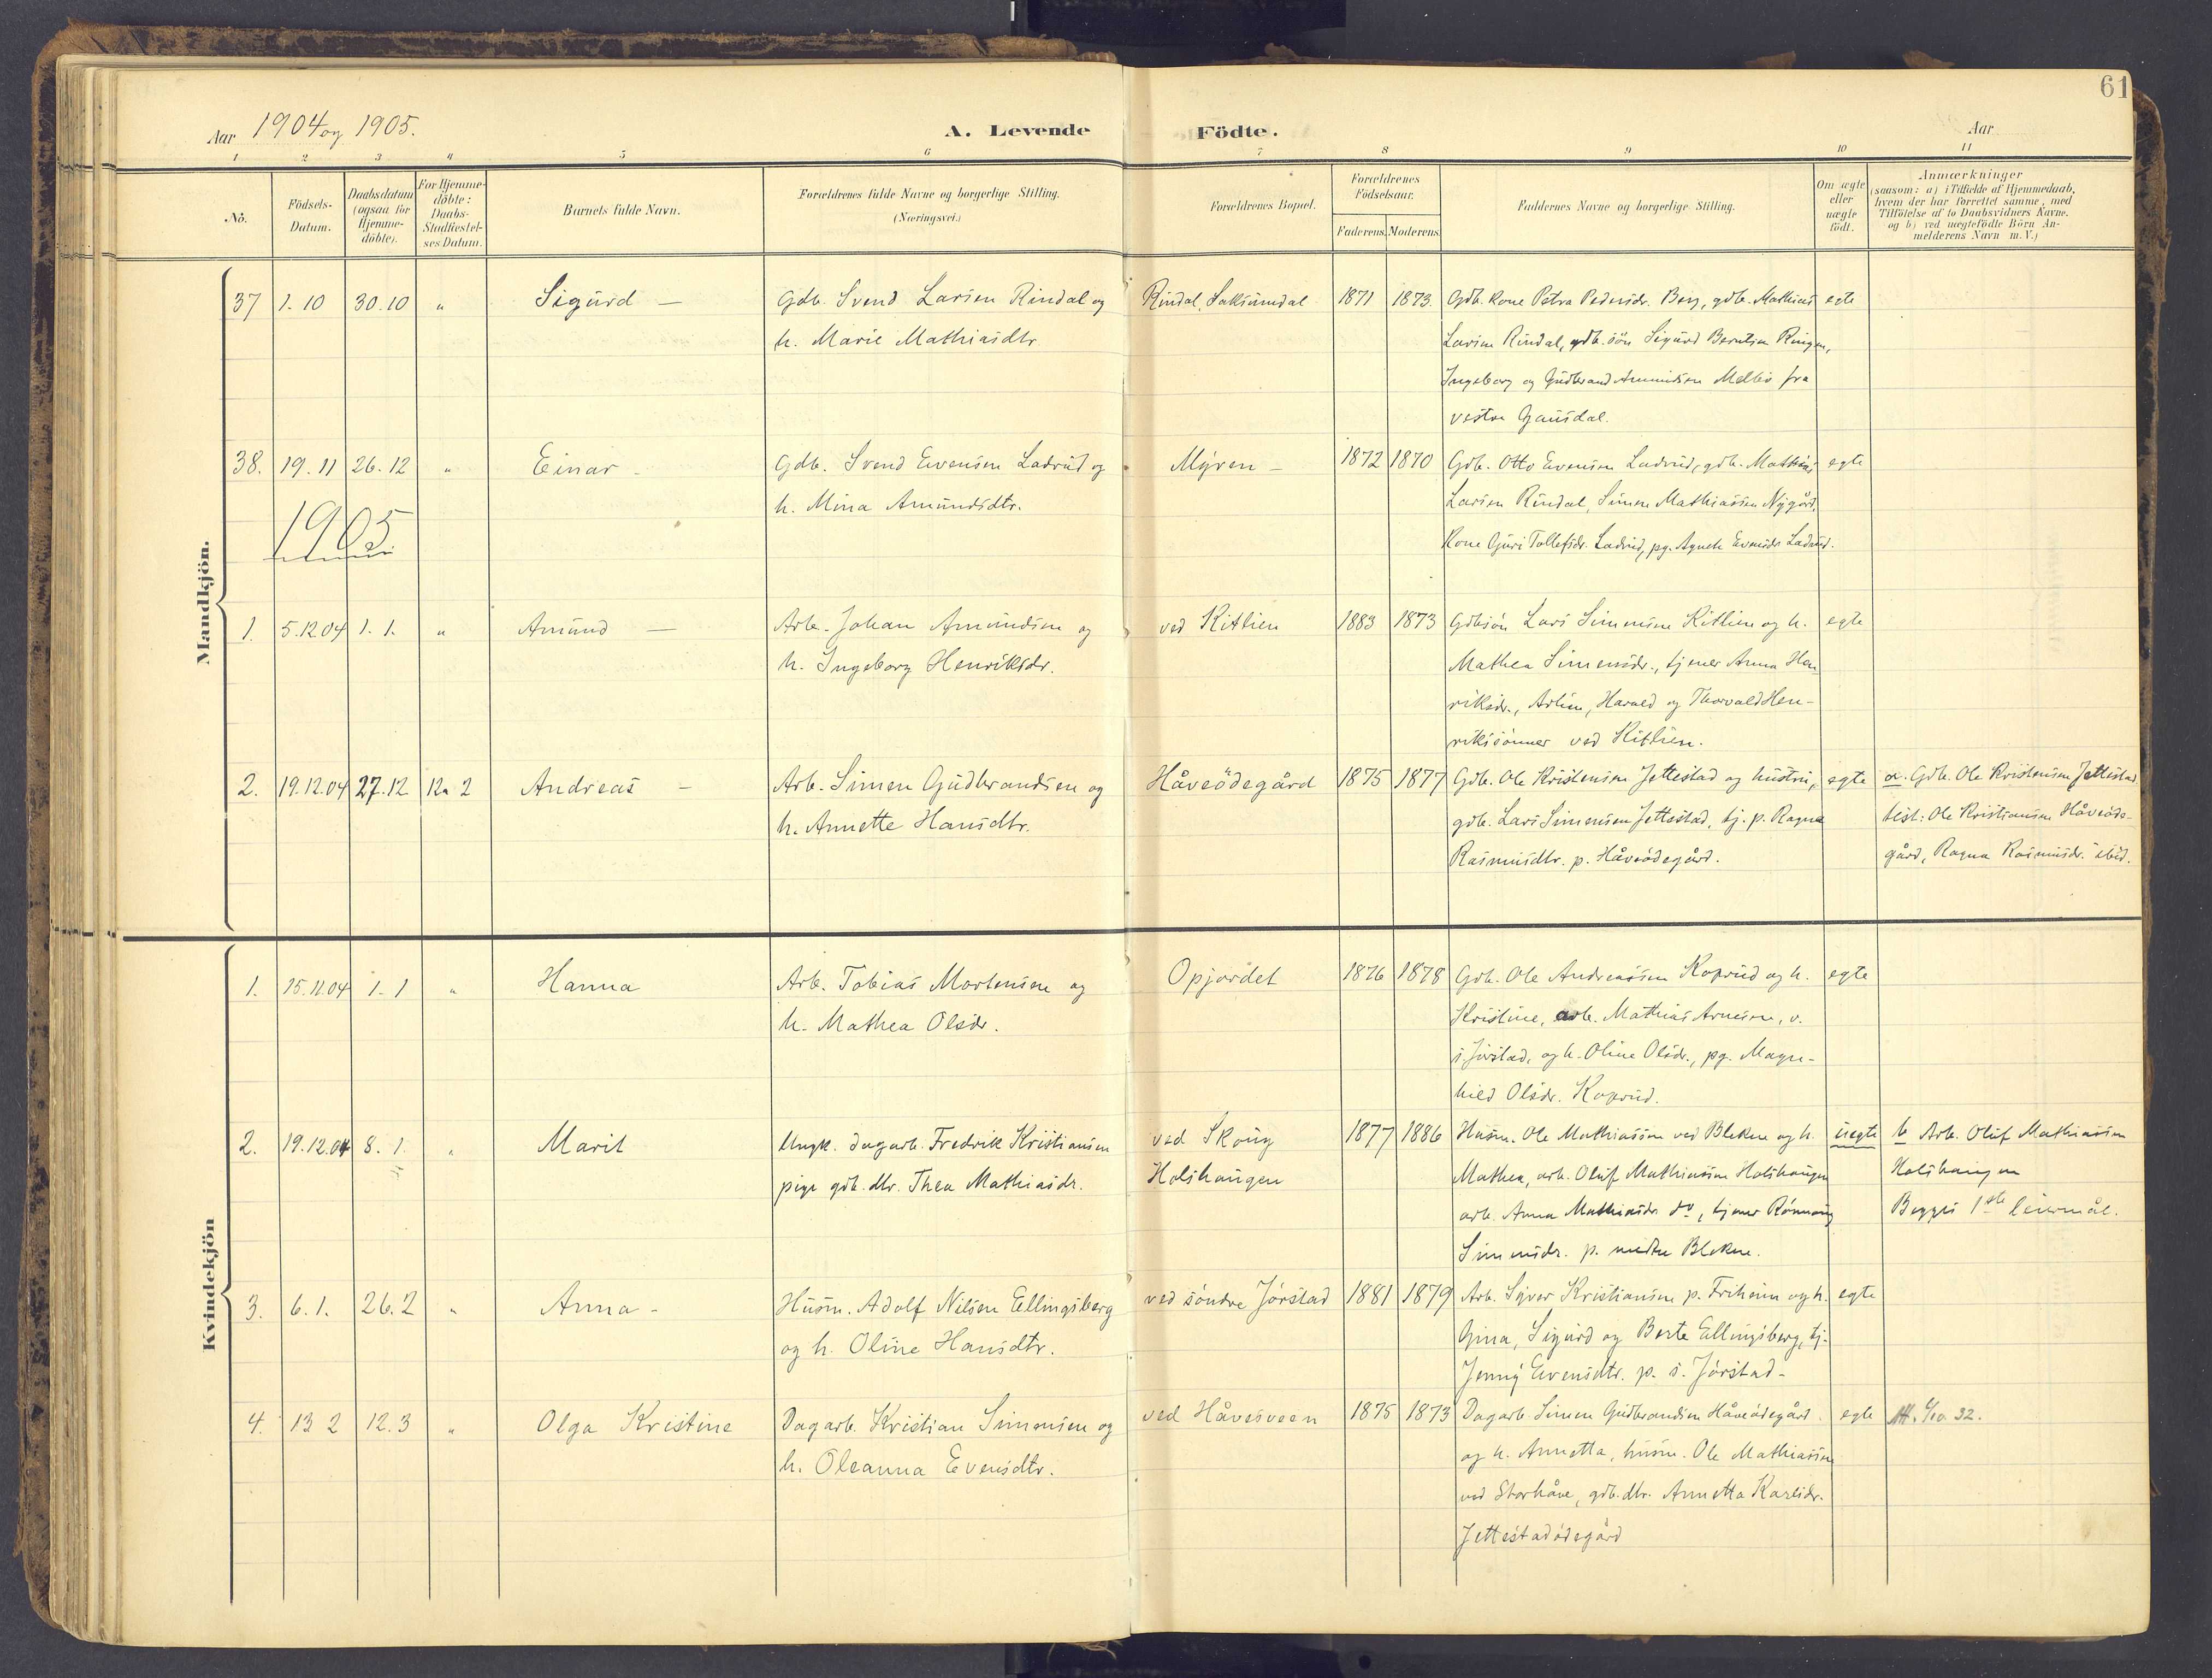 61
Aar 1904 og 1905.
A. Levende Födte.
Aar
1 2 3 4 5 6 7 8 9 10 11
No.
Födsels-Datum.
Daabsdatum (ogsaa for Hjemme-döbte).
For Hjemme-döbte: Daabs-Stadfæstel-ses Datum.
Barnets fulde Navn.
Forældrenes fulde Navne og borgerlige Stilling.
(Næringsvei.)
Forældrenes Bopæl.
Forældrenes Födselsaar.
Faderens. Moderens.
Faddernes Navne og borgerlige Stilling.
Om ægte eller uægte födt.
Anmærkninger
(saasom: a) i Tilfælde af Hjemmedaab,
hvem der har forrettet samme, med
Tilföielse af to Daabsvidners Navne.
og b) ved uægtefödte Börn An-
melderens Navn m. V.)
Mandkjön.
37 1.10 30.10 " Sigurd — Gdb. Svend Larsen Rindal og Rindal, Saksumdal 1871 1873. Gdb. kone Petra Pedersdr. Berg, gdb. Mathias egte
h. Marie Mathiasdtr. Larsen Rindal, gdb. sön Sigurd Berntsen Ringen,
Ingeborg og Gudbrand Amundsen Melbö fra
vestre Gausdal.
38. 19.11 26.12 " Einar - Gdb. Svend Evensen Ladrud og Myren - 1872 1870 Gdb. Otto Evensen Ladrud, gdb. Mathias egte
h. Mina Amundsdtr. Larsen Rindal, Simen Mathiassen Nygård,
1905 Kone Guri Tollefsdr. Ladrud, pg. Agnete Evensdr. Ladrud.
1. 5.12.04 1.1. " Amund — Arb. Johan Amundsen og ved Kitlien 1883 1873 Gdbsön Lars Simensen Kitlien og h. egte
h. Ingeborg Henriksdr. Mathea Simensdr., tjener Anna Hen-
riksdr., Harald og Thorvald Hen-
rikssönner ved Kitlien.
2. 19.12.04 27.12 12. 2 Andreas - Arb. Simen Gudbrandsen og Håveödegård 1875 1877 Gdb. Ole Kristensen Jettestad og hustru, egte a. Gdb. Ole Kristensen Jettestad
h. Annette Hansdtr. gdb. Lars Simensen Jettestad, tj. p. Ragna test: Ole Kristiansen Håveöde-
Rasmusdtr. p. Håveödegård. gård, Ragna Rasmusdr. ibid.
Kvindekjön
1. 15.11.04 1.1 " Hanna Arb. Tobias Mortensen og Opjordet 1876 1878 Gdb. Ole Andreassen Koprud og h. egte
h. Mathea Olsdr. Kristine, arb. Mathias Arnesen, v.
s. Jörstad, og h. Oline Olsdr., pg. Magn-
hild Olsdr. Koprud.
2. 19.12.04 8.1. " Marit Ungk. dagarb. Fredrik Kristiansen ved Skoug 1877 1886 Husm. Ole Mathiassen ved Blekne og h. uegte b Arb. Oluf Mathiassen
pige gdb. dtr. Thea Mathiasdr. Holshaugen Mathea, arb. Oluf Mathiassen Holshaugen Holshaugen
arb. Anna Mathiasdr. do, tjener Rönnaug Begges 1ste leiermål.
Simensdr. p. nedre Blekne.
3. 6.1. 26.2 " Anna - Husm. Adolf Nilsen Ellingsberg ved söndre Jörstad 1881 1879 Arb. Syver Kristiansen p. Friheim og h. egte
og h. Oline Hansdtr. Gina, Sigurd og Berte Ellingsberg, tj.
Jenny Evensdtr. p. s. Jörstad -
4. 13 2 12.3 " Olga Kristine Dagarb. Kristian Simensen og ved Håvesveen 1875 1873 Dagarb. Simen Gudbrandsen Håveödegård. egte Att. 6/10. 32.
h. Oleanna Evensdtr. og h. Annetta, husm. Ole Mathiassen
ved Storhåve, gdb. dtr. Annetta Karlsdr.
Jettestadödegård